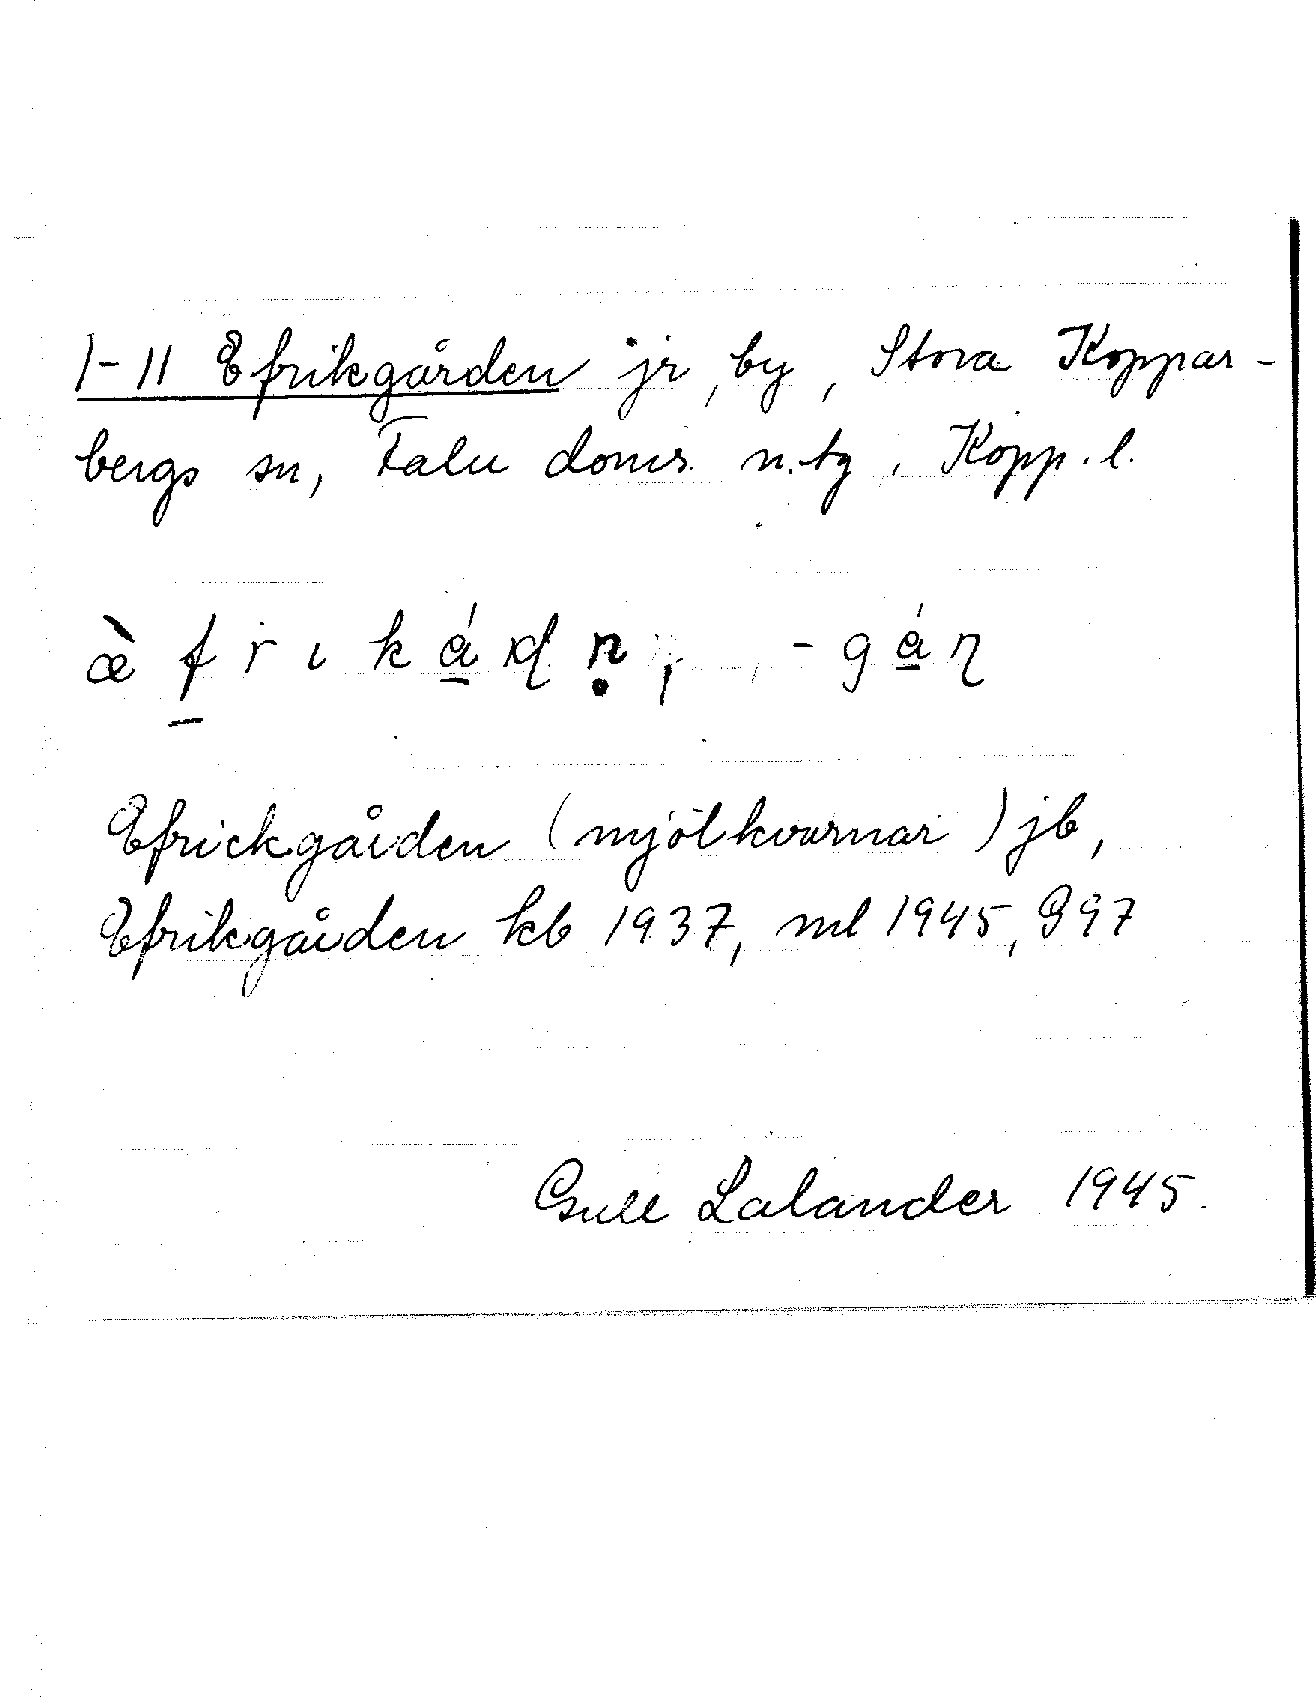 1-11 Efrikgården jr, by, Stora Koppar-
bergs sn, Falu doms. n. tg, Kopp. l.
æ̀ f̲ r ı k á̲ ɖ ṇ, -g á̲ ɳ
Efrickgården (mjölkvarnar) jb,
Efrikgården kb 1937, ml 1945, 997
Gull Lalander 1945.